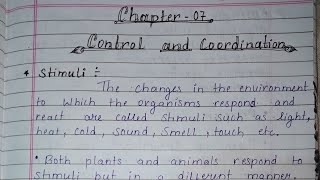 Chapter - 07
Control and Coordination
* Stimuli :-
The changes in the environment
to which the organisms respond and
react are called stimuli such as light,
heat, cold, sound, smell, touch etc.
• Both plants and animals respond to
stimuli but in a different manner.